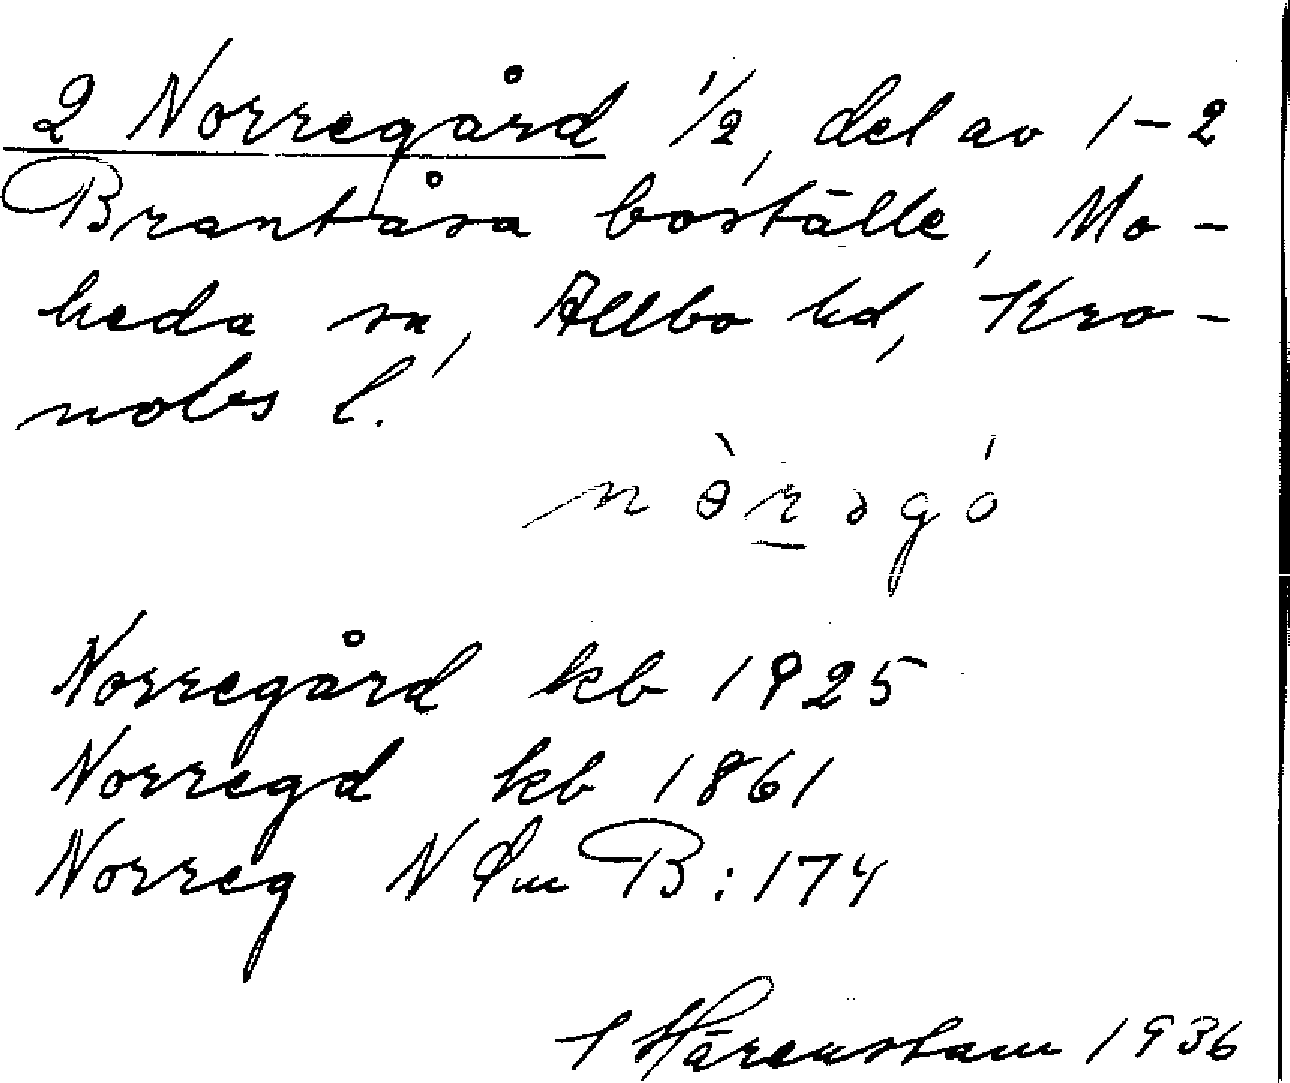 2 Norregård 1/2, del av 1-2
Brantåsa boställe, Mo-
heda sn, Allbo hd, Kro-
nobs l.
nòrəgó
Norregård kb 1925
Norregd kb 1861
Norreg N Sm B:174
Härenstam 1936